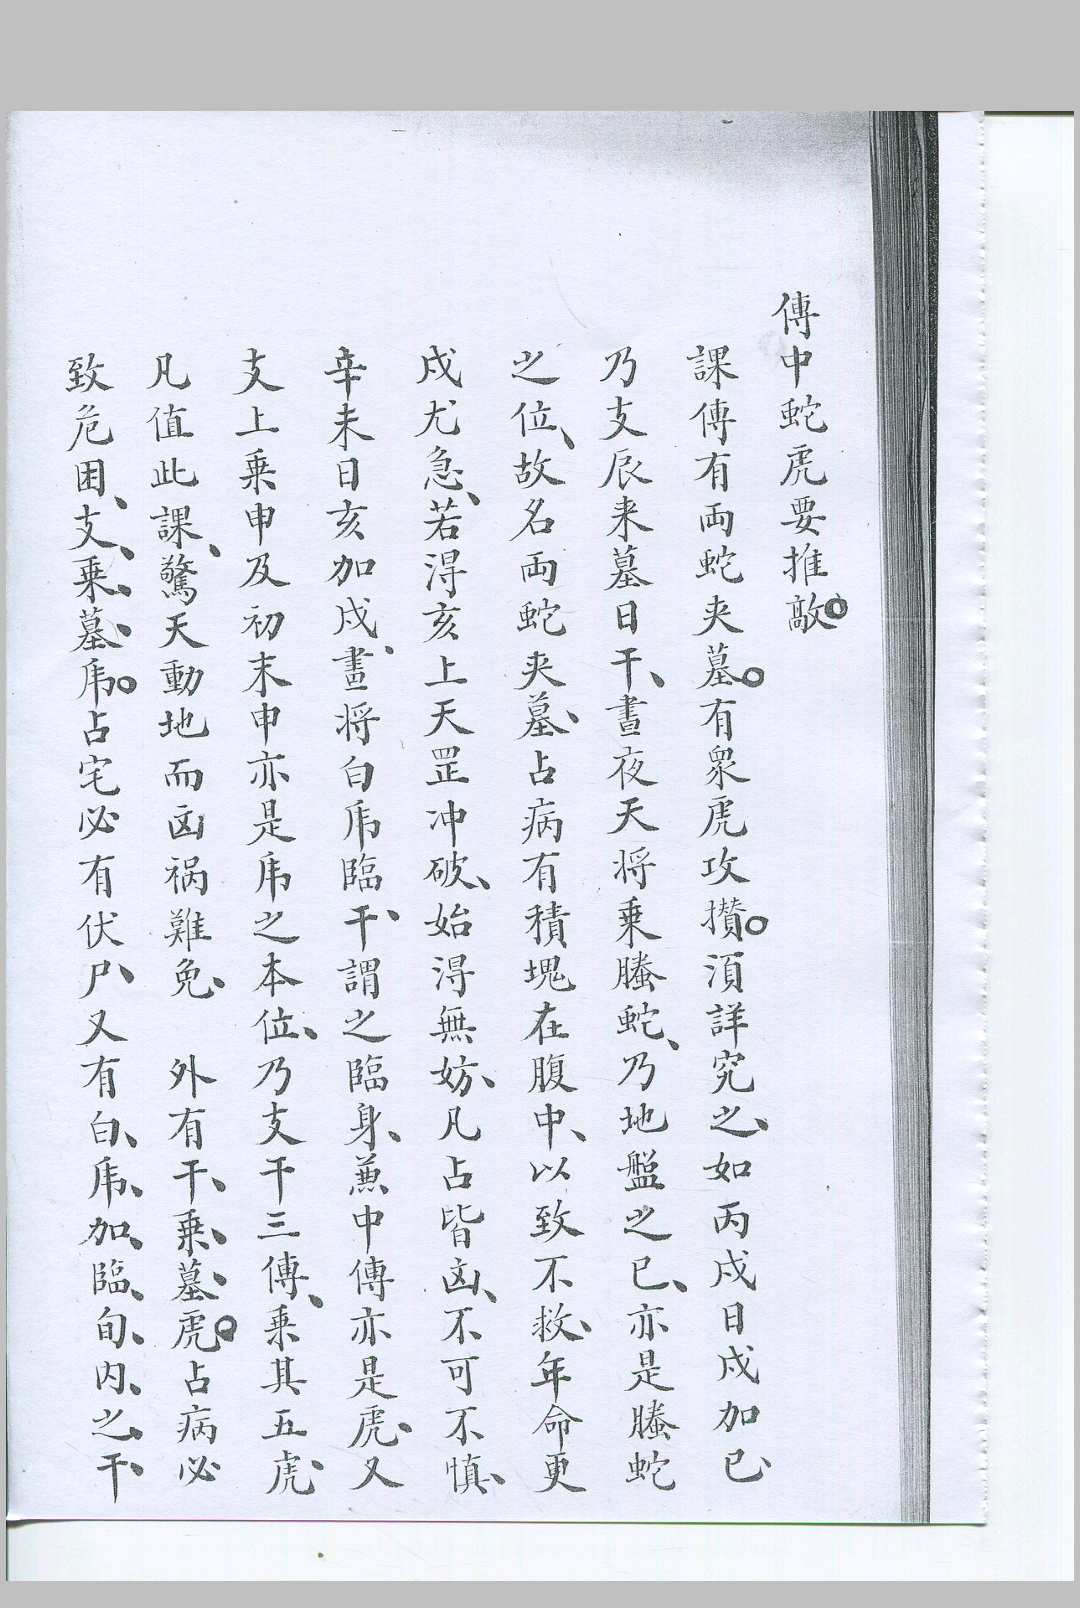 傳中蛇虎要推敲。
課傳有両蛇夹墓。有衆虎攻攅。湏詳究之、如丙戍日戍加巳、
乃支辰来墓日干、晝夜天将乗螣蛇、乃地盤之巳、亦是螣蛇
之位、故名両蛇夹墓、占病有積塊在腹中、以致不救、年命更
戍尤急、若淂亥上天罡冲破、始淂無妨、凡占皆凶、不可不慎、
辛未日亥加戍、晝将白乕臨干、謂之臨身、蕪中傳亦是虎、又
支上乗申及初末申亦是乕之本位、乃支干三傳、乗其五虎、
凡值此課、驚天動地而凶禍難免、　外有干、乗、墓、虎。占病必
致危困、支、乗、墓、乕。占宅必有伏尸、又有白、乕、加、臨、旬、内、之、干、